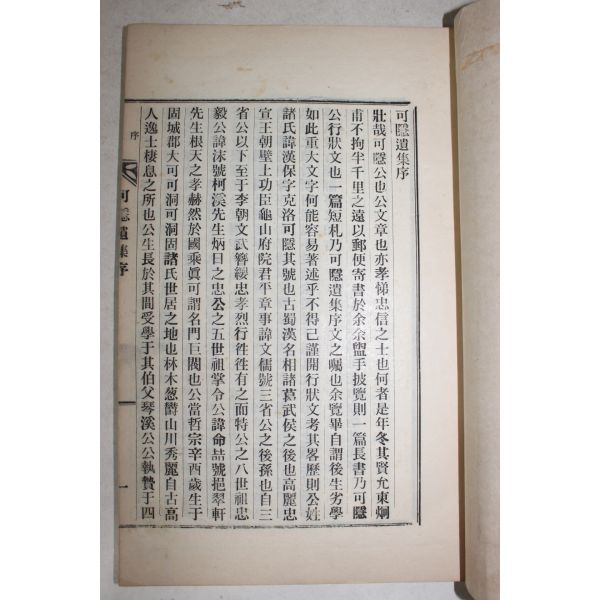 可隱遺集序
壯哉可隱公也公文章也亦孝悌忠信之士也何者是年冬其賢允東炯
甫不拘半千里之遠以郵便寄書於余余盥手披覽則一篇長書乃可隱
公行狀文也一篇短札乃可隱遺集序文之囑也余覽畢自謂後生劣學
如此重大文字何能容易著述乎不得已謹開行狀文考其畧歷則公姓
諸氏諱漢保字克洛可隱其號也古蜀漢名相諸葛武侯之後也高麗忠
宣王朝壁上功臣龜山府院君平章事諱文儒號三省公之後孫也自三
省公以下至于李朝文武簪纓忠孝烈行徃徃有之而特公之八世祖忠
毅公諱沫號柯溪先生炳日之忠公之五世祖掌令公諱命喆號挹翠軒
先生根天之孝赫然於國乘眞可謂名門巨閥也公當哲宗辛酉歲生于
固城郡大可可洞可洞固諸氏世居之地也林木葱欝山川秀麗自古高
人逸士棲息之所也公生長於其間受學于其伯父琴溪公公執贄于四
序
可隱遺集序
一